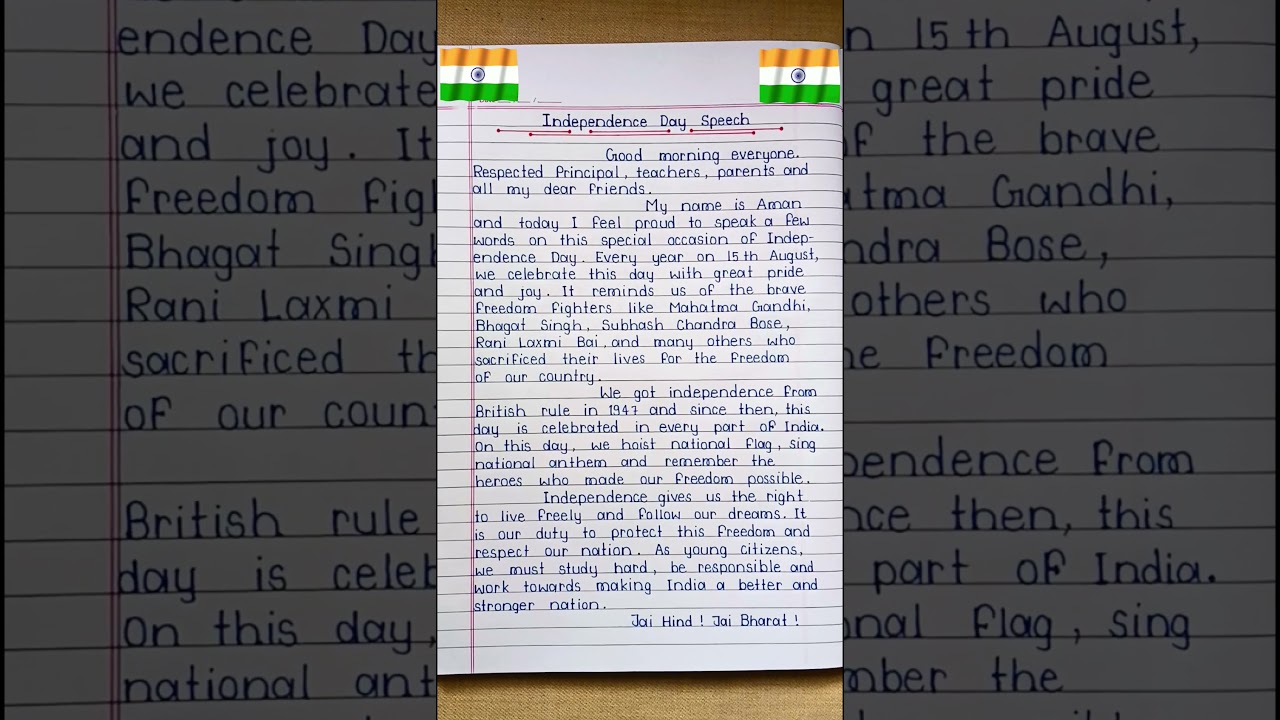 Independence Day Speech
Good morning everyone.
Respected Principal, teachers, parents and
all my dear friends.
My name is Aman
and today I feel proud to speak a few
words on this special occasion of Indep-
endence Day. Every year on 15th August,
we celebrate this day with great pride
and joy. It reminds us of the brave
freedom fighters like Mahatma Gandhi,
Bhagat Singh, Subhash Chandra Bose,
Rani Laxmi Bai, and many others who
sacrificed their lives for the freedom
of our country.
We got independence from
British rule in 1947 and since then, this
day is celebrated in every part of India.
On this day, we hoist national flag, sing
national anthem and remember the
heroes who made our freedom possible.
Independence gives us the right
to live freely and follow our dreams. It
is our duty to protect this freedom and
respect our nation. As young citizens,
we must study hard, be responsible and
work towards making India a better and
stronger nation.
Jai Hind! Jai Bharat!